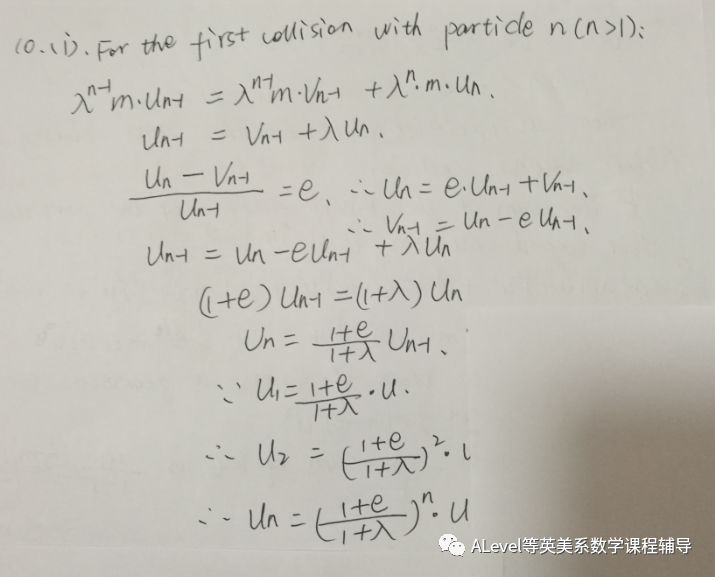 10.(i). For the first collision with particle n (n>1):
λⁿ⁻¹m·Uₙ₋₁ = λⁿ⁻¹m·Vₙ₋₁ + λⁿ·m·Uₙ.
Uₙ₋₁ = Vₙ₋₁ + λUₙ.
(Uₙ − Vₙ₋₁)/Uₙ₋₁ = e, ∴ Uₙ = e·Uₙ₋₁ + Vₙ₋₁.
∴ Vₙ₋₁ = Uₙ − eUₙ₋₁.
Uₙ₋₁ = Uₙ − eUₙ₋₁ + λUₙ
(1+e)Uₙ₋₁ = (1+λ)Uₙ
Uₙ = (1+e)/(1+λ) Uₙ₋₁.
∵ U₁ = (1+e)/(1+λ) · U.
∴ U₂ = ((1+e)/(1+λ))² ·
∴ Uₙ = ((1+e)/(1+λ))ⁿ · U
ALevel等英美系数学课程辅导